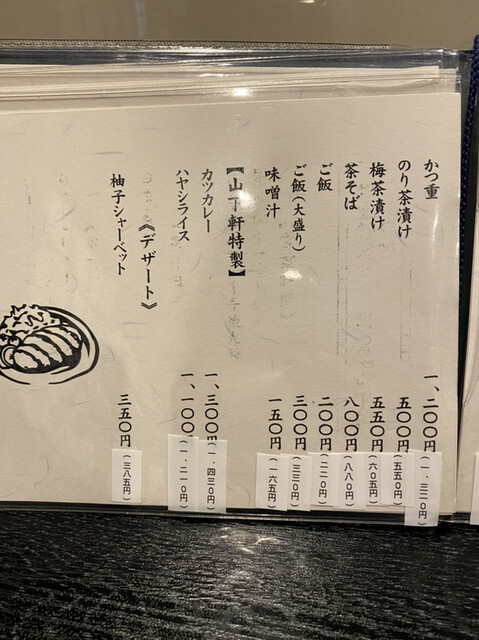 かつ重 一、二〇〇円(一、三二〇円)
のり茶漬け 五〇〇円(五五〇円)
梅茶漬け 五五〇円(六〇五円)
茶そば 八〇〇円(八八〇円)
ご飯 二〇〇円(二二〇円)
ご飯(大盛り) 三〇〇円(三三〇円)
味噌汁 一五〇円(一六五円)
【山下軒特製】
カツカレー 一、三〇〇円(一、四三〇円)
ハヤシライス 一、一〇〇円(一、二一〇円)
《デザート》
柚子シャーベット 三五〇円(三八五円)